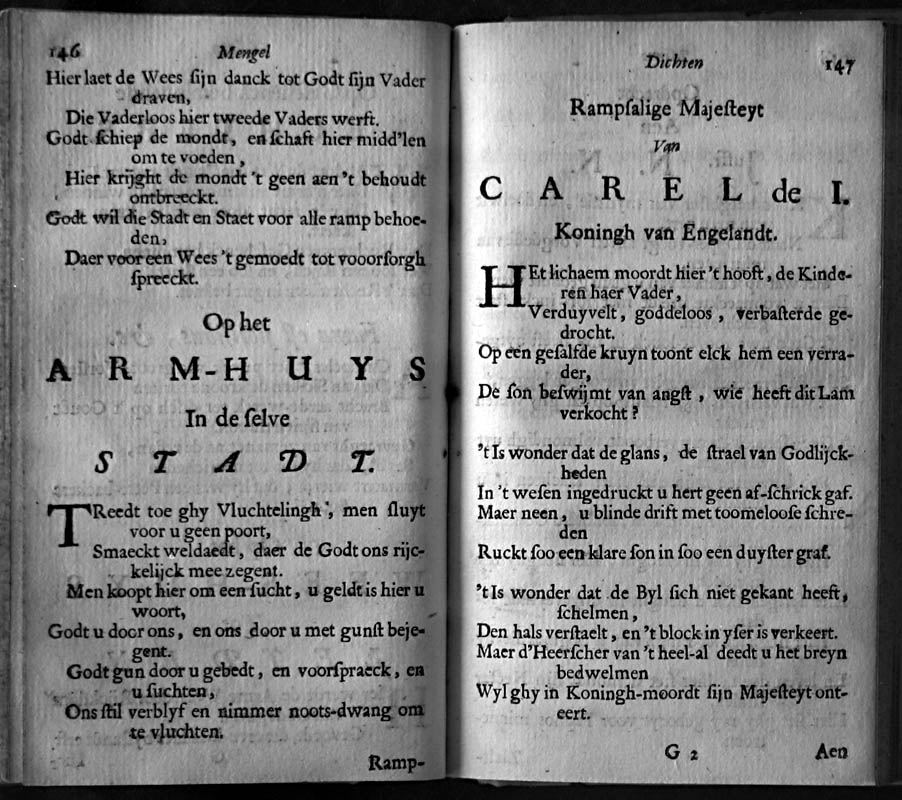 146 Mengel
Hier laet de Wees ſijn danck tot Godt ſijn Vader
draven,
Die Vaderloos hier tweede Vaders werft.
Godt ſchiep de mondt, en ſchaft hier midd'len
om te voeden,
Hier krijght de mondt 't geen aen 't behoudt
ontbreeckt.
Godt wil die Stadt en Staet voor alle ramp behoe-
den,
Daer voor een Wees 't gemoedt tot vooorſorgh
ſpreeckt.
Op het
ARM-HUYS
In de ſelve
STADT.
TReedt toe ghy Vluchtelingh, men ſluyt
voor u geen poort,
Smaeckt weldaedt, daer de Godt ons rijc-
kelijck mee zegent.
Men koopt hier om een ſucht, u geldt is hier u
woort,
Godt u door ons, en ons door u met gunſt beje-
gent.
Godt gun door u gebedt, en voorſpraeck, en
u ſuchten,
Ons ſtil verblyf en nimmer noots-dwang om
te vluchten.
Ramp-
Dichten 147
Rampſalige Majeſteyt
Van
CAREL de I.
Koningh van Engelandt.
HEt lichaem moordt hier 't hooft, de Kinde-
ren haer Vader,
Verduyvelt, goddeloos, verbaſterde ge-
drocht.
Op een geſalfde kruyn toont elck hem een verra-
der,
De ſon beſwijmt van angſt, wie heeft dit Lam
verkocht?
't Is wonder dat de glans, de ſtrael van Godlijck-
heden
In 't weſen ingedruckt u hert geen af-ſchrick gaf.
Maer neen, u blinde drift met toomelooſe ſchre-
den
Ruckt ſoo een klare ſon in ſoo een duyſter graf.
't Is wonder dat de Byl ſich niet gekant heeft,
ſchelmen,
Den hals verſtaelt, en 't block in yſer is verkeert.
Maer d'Heerſcher van 't heel-al deedt u het breyn
bedwelmen
Wyl ghy in Koningh-moordt ſijn Majeſteyt ont-
eert.
G 2 Aen